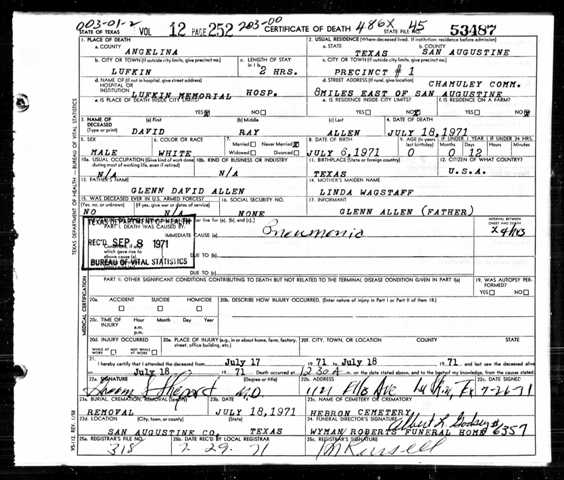 003-01-2 203-00 486X 45
STATE OF TEXAS VOL 12 PAGE 252 CERTIFICATE OF DEATH STATE FILE NO. 53487
1. PLACE OF DEATH 2. USUAL RESIDENCE (Where deceased lived. If institution: residence before admission)
a. COUNTY a. STATE b. COUNTY
ANGELINA TEXAS SAN AUGUSTINE
b. CITY OR TOWN (If outside city limits, give precinct no.) c. LENGTH OF STAY c. CITY OR TOWN (If outside city limits, give precinct no.)
LUFKIN 2 HRS. PRECINCT #1
d. NAME OF (If not in hospital, give street address) d. STREET ADDRESS (If rural, give location) CHAMULEY COMM.
HOSPITAL OR
INSTITUTION LUFKIN MEMORIAL HOSP. 8MILES EAST OF SAN AUGUSTINE
e. IS PLACE OF DEATH INSIDE CITY LIMITS? e. IS RESIDENCE INSIDE CITY LIMITS? f. IS RESIDENCE ON A FARM?
YES NO YES NO YES NO
3. NAME OF DECEASED (a) First (b) Middle (c) Last 4. DATE OF DEATH
(Type or print) DAVID RAY ALLEN JULY 18,1971
5. SEX 6. COLOR OR RACE 7. Married Never Married 8. DATE OF BIRTH 9. AGE (In years) IF UNDER 1 YEAR IF UNDER 24 HRS.
MALE WHITE Widowed Divorced JULY 6,1971 0 0 12
10a. USUAL OCCUPATION (Give kind of work done during most of working life, even if retired) 10b. KIND OF BUSINESS OR INDUSTRY 11. BIRTHPLACE (State or foreign country) 12. CITIZEN OF WHAT COUNTRY?
N/A N/A TEXAS U.S.A.
13. FATHER'S NAME 14. MOTHER'S MAIDEN NAME
GLENN DAVID ALLEN LINDA WAGSTAFF
15. WAS DECEASED EVER IN U.S. ARMED FORCES? 16. SOCIAL SECURITY NO. 17. INFORMANT
(Yes, no, or unknown) (If yes, give war or dates of service)
NO N/A NONE GLENN ALLEN (FATHER)
TEXAS DEPARTMENT OF HEALTH
PART I. DEATH WAS CAUSED BY:
IMMEDIATE CAUSE (a) Pneumonia
REC'D SEP 8 1971
DUE TO (b)
BUREAU OF VITAL STATISTICS
DUE TO (c)
PART II. OTHER SIGNIFICANT CONDITIONS CONTRIBUTING TO DEATH BUT NOT RELATED TO THE TERMINAL DISEASE CONDITION GIVEN IN PART I(a) 19. WAS AUTOPSY PERFORMED?
YES NO
20a. ACCIDENT SUICIDE HOMICIDE 20b. DESCRIBE HOW INJURY OCCURRED. (Enter nature of injury in Part I or Part II of item 18.)
20c. TIME OF INJURY Hour Month Day Year
a.m.
p.m.
20d. INJURY OCCURRED 20e. PLACE OF INJURY (e.g., in or about home, farm, factory, street, office building, etc.) 20f. CITY, TOWN, OR LOCATION COUNTY STATE
WHILE AT WORK NOT WHILE AT WORK
21. I hereby certify that I attended the deceased from July 17 19 71 to July 18 19 71. and last saw the deceased alive
on July 18 19 71 Death occurred at 12 30 A m. on the date stated above, and to the best of my knowledge, from the causes stated.
22a. SIGNATURE (Degree or title) 22b. ADDRESS 22c. DATE SIGNED
Shepard M.D. Ave Lufkin, Tx 7-26-71
23a. BURIAL, CREMATION, REMOVAL (Specify) 23b. DATE 23c. NAME OF CEMETERY OR CREMATORY
REMOVAL JULY 18,1971 HEBRON CEMETERY
23d. LOCATION (City, town, or county) (State) 24. FUNERAL DIRECTOR'S SIGNATURE
SAN AUGUSTINE CO. TEXAS WYMAN/ROBERTS FUNERAL HOME 6357
25a. REGISTRAR'S FILE NO. 25b. DATE REC'D BY LOCAL REGISTRAR 25c. REGISTRAR'S SIGNATURE
318 7 29. 71
TEXAS DEPARTMENT OF HEALTH — BUREAU OF VITAL STATISTICS
MEDICAL CERTIFICATION